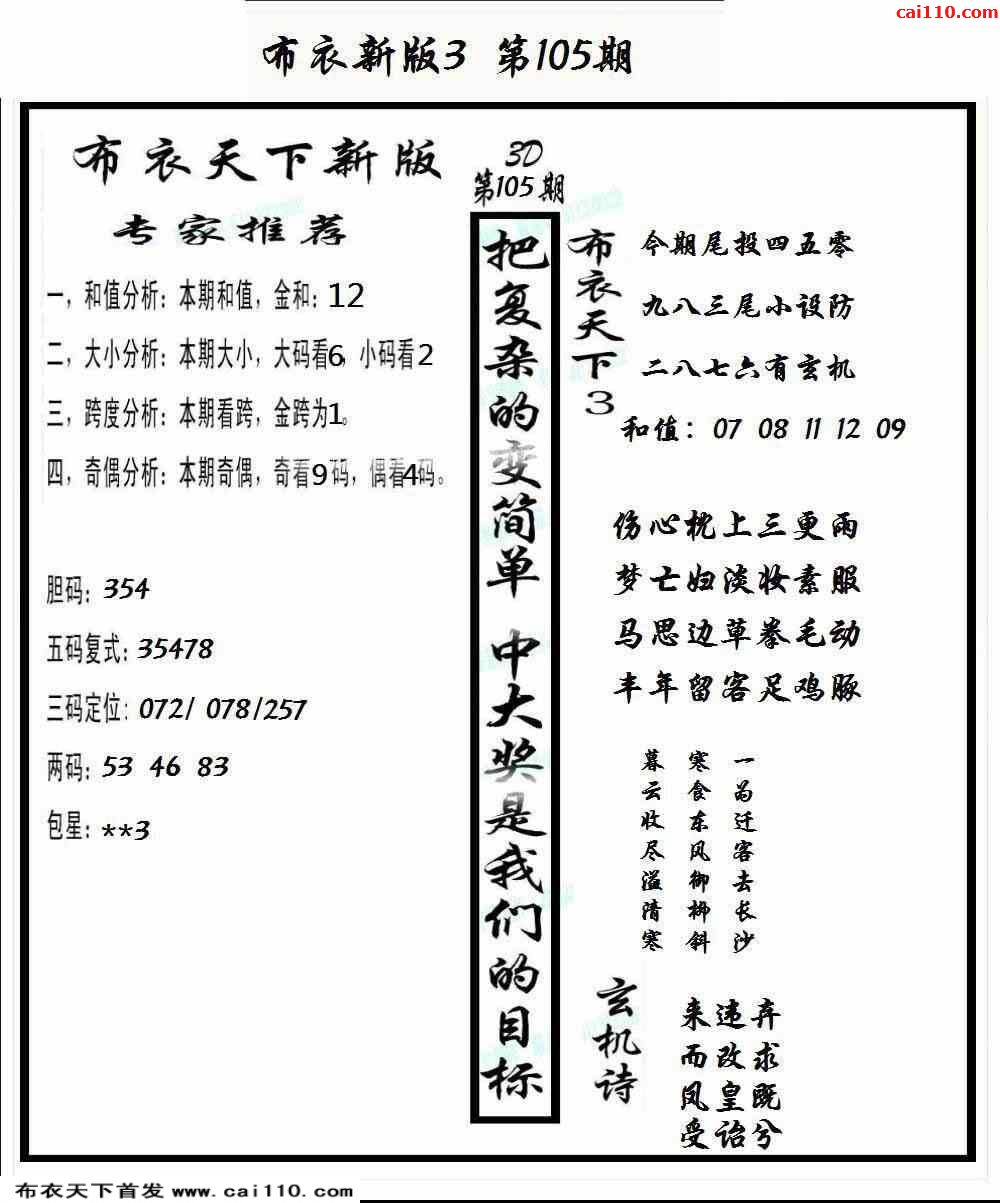 cai110.com
布衣新版3 第105期
布衣天下新版
专家推荐
一，和值分析：本期和值，金和：12
二，大小分析：本期大小，大码看6，小码看2
三，跨度分析：本期看跨，金跨为1。
四，奇偶分析：本期奇偶，奇看9码，偶看4码。
胆码：354
五码复式：35478
三码定位：072/ 078/257
两码：53 46 83
包星：**3
3D
第105期
把复杂的变简单 中大奖是我们的目标
布衣天下3
今期尾投四五零
九八三尾小设防
二八七六有玄机
和值：07 08 11 12 09
伤心枕上三更雨
梦亡妇淡妆素服
马思边草拳毛动
丰年留客足鸡豚
一为迁客去长沙
寒食东风御柳斜
暮云收尽溢清寒
玄机诗
来违弃
而改求
凤皇既
受诒兮
布衣天下首发 www.cai110.com